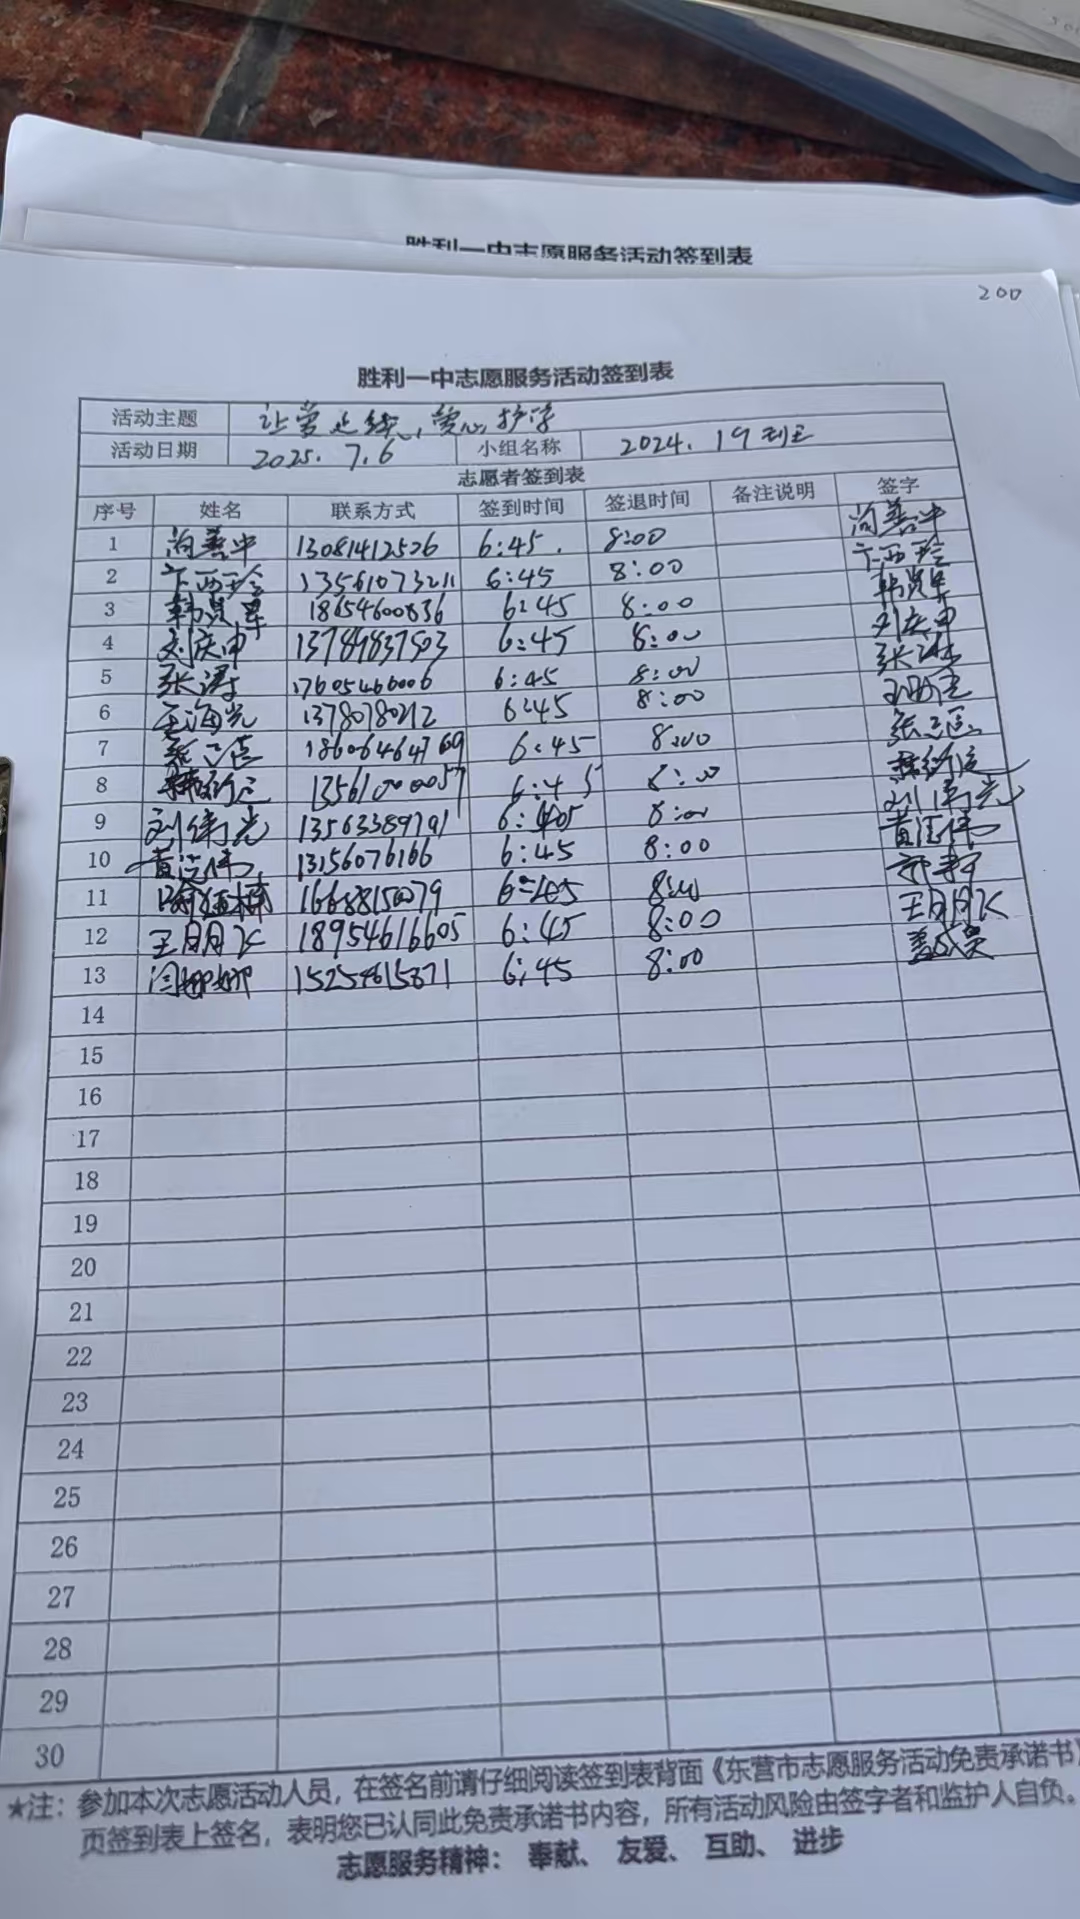 胜利一中志愿服务活动签到表
200
胜利一中志愿服务活动签到表
活动主题 让爱走线，爱心护学
活动日期 2025.7.6 小组名称 2024.19班
志愿者签到表
序号 姓名 联系方式 签到时间 签退时间 备注说明 签字
1 尚善中 13081412526 6:45. 8:00 尚善中
2 卞西玲 13561073211 6:45 8:00 卞西玲
3 韩贤军 18654600836 6:45 8:00 韩贤军
4 刘庆申 13789837503 6:45 8:00 刘庆申
5 张涛 17605466006 6:45 8:00 张涛
6 王海光 13780780212 6:45 8:00
7 18606464769 6:45 8:00
8 6:45 8:00
9 刘伟光 13563389791 6:45 8:00 刘伟光
10 黄运伟 13156076166 6:45 8:00 黄运伟
11 16668150079 6:45 8:00
12 王月月飞 18954616605 6:45 8:00 王月月飞
13 闫娜娜 15254615871 6:45 8:00
14
15
16
17
18
19
20
21
22
23
24
25
26
27
28
29
30
★注：参加本次志愿活动人员，在签名前请仔细阅读签到表背面《东营市志愿服务活动免责承诺书》
页签到表上签名，表明您已认同此免责承诺书内容，所有活动风险由签字者和监护人自负。
志愿服务精神：奉献、友爱、互助、进步